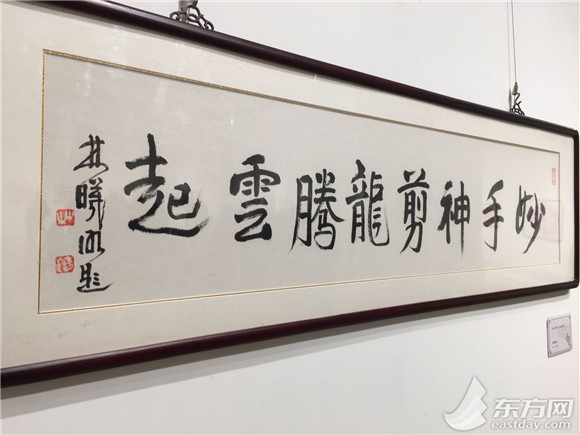 妙手神剪龍騰雲起
林曦明題
东方网
eastday.com